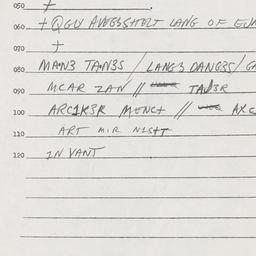 050 +
060 + QGU AVEGSSHTLT LANG OF EUR
+
070
080 MAN3 TANGS / LANGS DANGES / GA
090 MCAR ZAN // TAJ3R
100 ARC1K3R MENCT // AXC
110 ART MIR N1STT
120 IN VANT